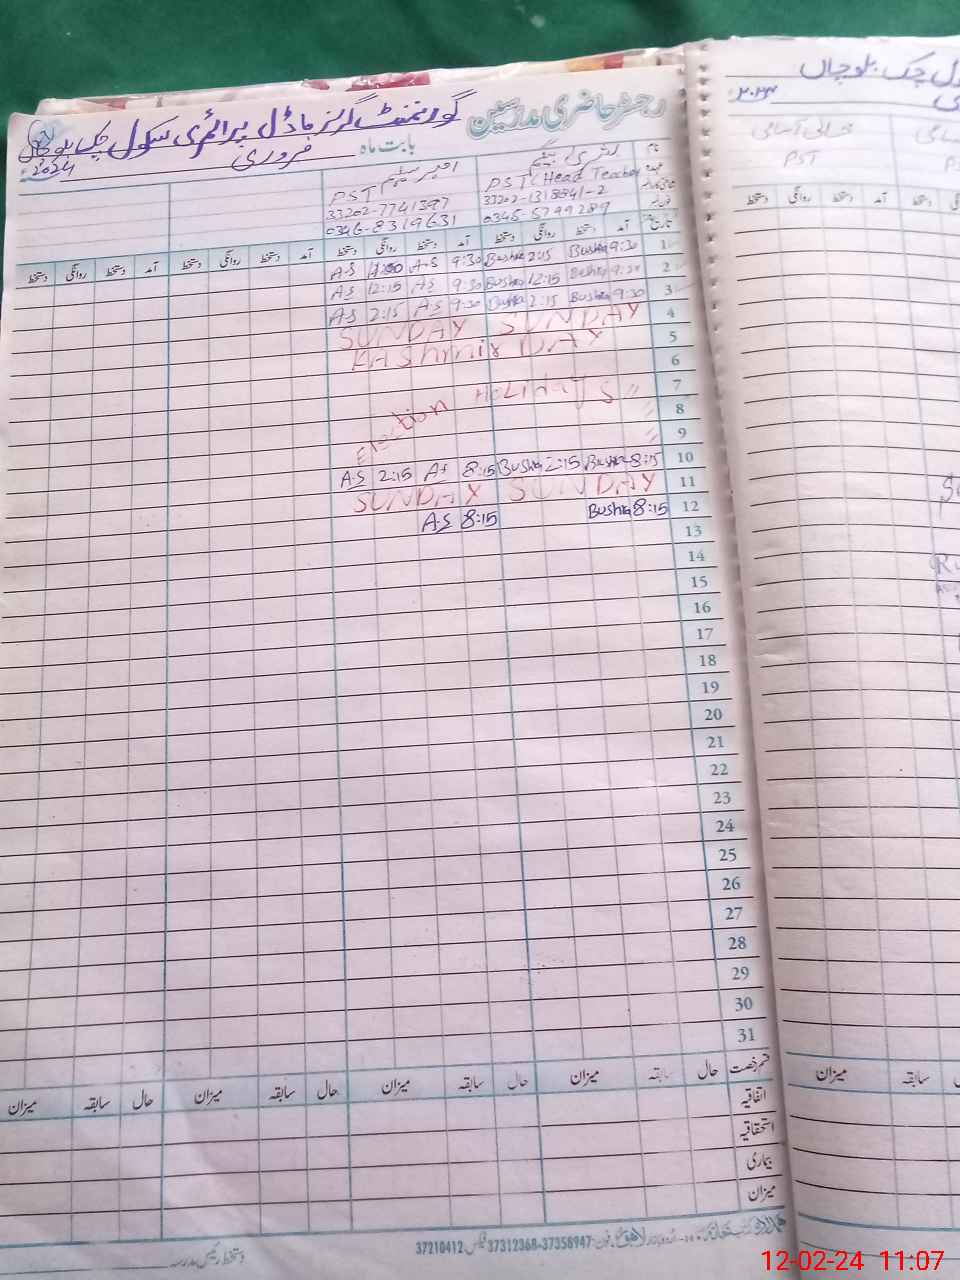 رجسٹر حاضری مدرسین
گورنمنٹ گرلز ماڈل پرائمری سکول چک بلوچاں
بابت ماہ فروری 2024ء
نام بشریٰ بیگم
عہدہ PST (Head Teacher
PST
33202-1318841-2
33202-7741397
0345-5799289
0346-8319631
تاریخ آمد دستخط روانگی دستخط آمد دستخط روانگی دستخط آمد دستخط روانگی دستخط آمد دستخط روانگی دستخط
1 9:30 Bushra 2:15 Bushra 9:30 A-S A-S
2 9:30 Bushra 12:15 Bushra 9:30 AS 12:15 A-S
3 9:30 Bushra 2:15 Bushra 9:30 AS 2:15 AS
4 SUNDAY SUNDAY
5 KAShmir DAY
6
7 Election HOLIdayS "
8 "
9 "
10 8:15 Bushra 2:15 Bushra 8:15 AS 2:15 A-S
11 SUNDAY SUNDAY
12 8:15 Bushra 8:15 A-S
13
14
15
16
17
18
19
20
21
22
23
24
25
26
27
28
29
30
31
قسم رخصت حال سابقہ میزان حال سابقہ میزان حال سابقہ میزان حال سابقہ میزان
اتفاقیہ
استحقاقیہ
بیماری
میزان
فون: 37358947-37312368 فیکس: 37210412
دستخط رئیس مدرسہ
چک بلوچاں
PST
دستخط روانگی دستخط آمد دستخط
میزان سابقہ
12-02-24 11:07